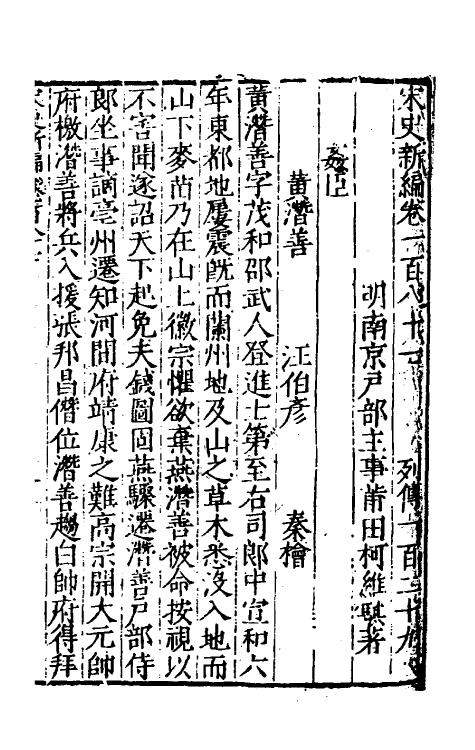 宋史新編卷一百八十七　列傳一百二十九
明南京戸部主事莆田柯維騏著
姦上
黃潛善　汪伯彥　秦檜
黃潛善字茂和邵武人登進士第至右司郎中宣和六
年東都地屢震旣而蘭州地及山之草木悉沒入地而
山下麥苗乃在山上徽宗懼欲棄燕潛善被命按視以
不害聞遂詔天下起免夫錢圖固燕驟遷潛善戸部侍
郎坐事謫亳州遷知河間府靖康之難高宗開大元帥
府檄潛善將兵入援張邦昌僭位潛善趨白帥府得拜